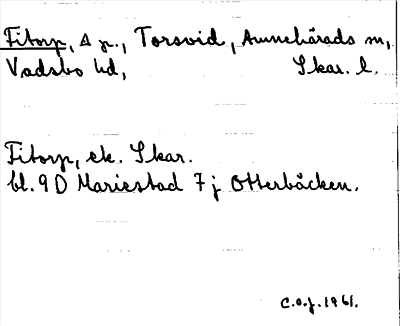 Fitorp, Δ p., Torsvid, Amnehärads sn,
Vadsbo hd, Skar. l.
Fitorp, ek. Skar.
bl. 9 D Mariestad 7 j Otterbäcken.
C.o.j. 1961.